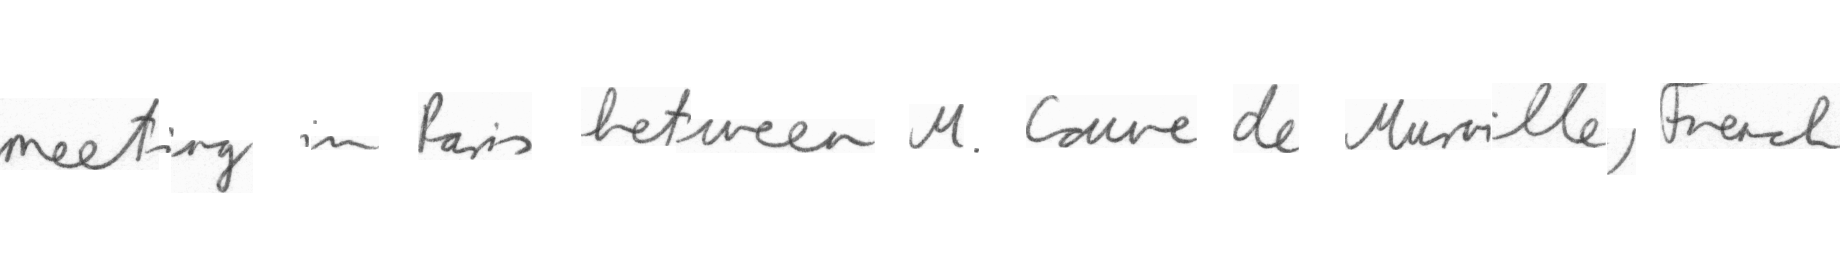 meeting in Paris between M. Couve de Murville, French